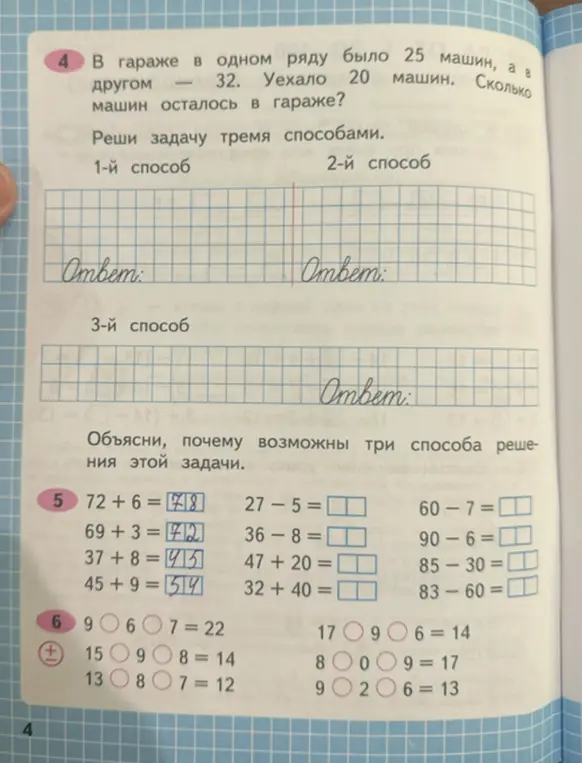 4 В гараже в одном ряду было 25 машин, а в
другом — 32. Уехало 20 машин. Сколько
машин осталось в гараже?
Реши задачу тремя способами.
1-й способ 2-й способ
Ответ: Ответ:
3-й способ
Ответ:
Объясни, почему возможны три способа реше-
ния этой задачи.
5 72 + 6 = 78 27 − 5 = 60 − 7 =
69 + 3 = 72 36 − 8 = 90 − 6 =
37 + 8 = 45 47 + 20 = 85 − 30 =
45 + 9 = 54 32 + 40 = 83 − 60 =
6 9 ○ 6 ○ 7 = 22 17 ○ 9 ○ 6 = 14
± 15 ○ 9 ○ 8 = 14 8 ○ 0 ○ 9 = 17
13 ○ 8 ○ 7 = 12 9 ○ 2 ○ 6 = 13
4